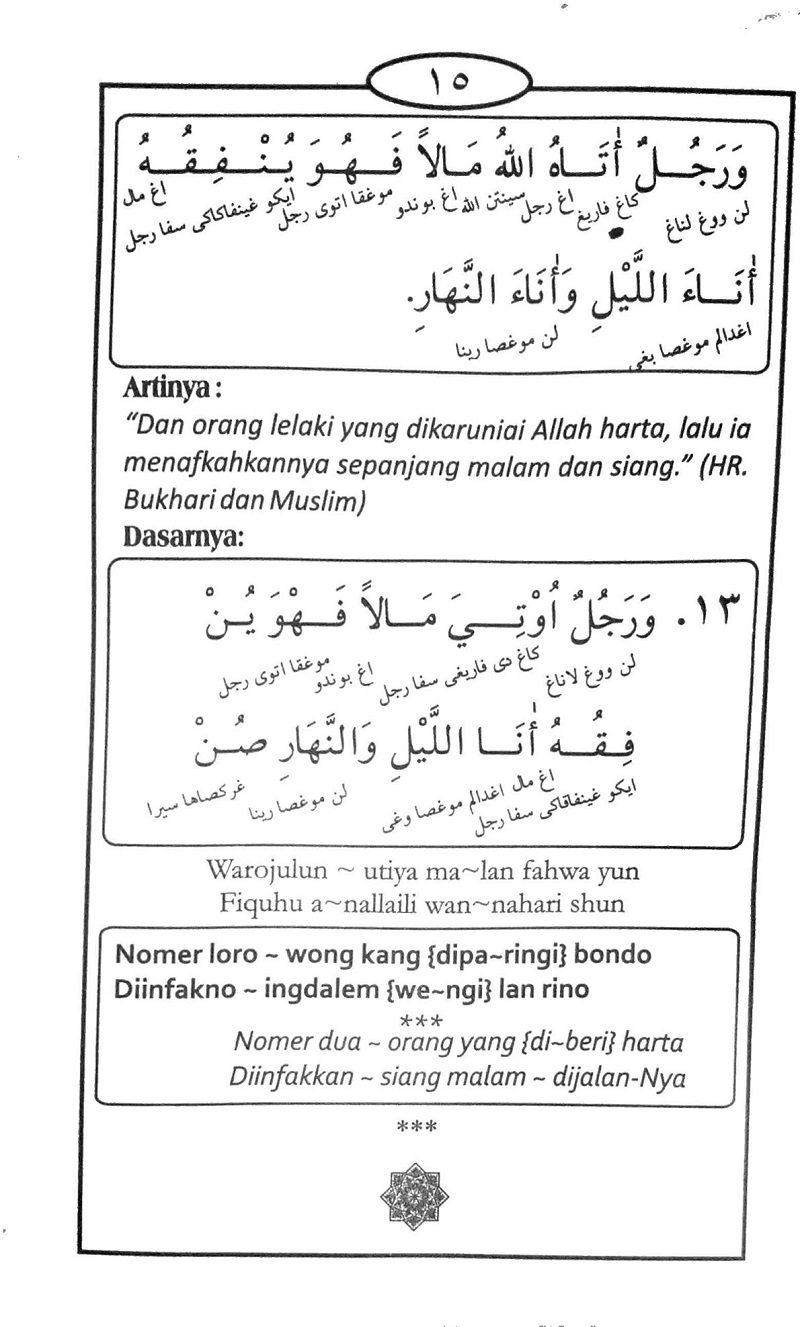 ١٥
وَرَجُـــلٌ أٰتَـــاهُ اللهُ مَـالاً فَـــهُـوَ يُـنْـــفِـقُـــهُ
لن ووڠ لناڠ كاڠ فاريڠ اڠ رجل سينتن الله اڠ بوندو موڠقا اتوى رجل ايكو ڠينفاكاكى سفا رجل اڠ مال
أٰنَـــاءَ اللَّيْلِ وَأٰنَاءَ النَّهَارِ.
اڠدالم موڠصا بڠى لن موڠصا رينا
Artinya :
“Dan orang lelaki yang dikaruniai Allah harta, lalu ia
menafkahkannya sepanjang malam dan siang.” (HR.
Bukhari dan Muslim)
Dasarnya:
١٣. وَرَجُلٌ اُوْتِـــيَ مَـــالاً فَـــهْوَ يُـنْ
لن ووڠ لاناڠ كاڠ دى فاريڠى سفا رجل اڠ بوندو موڠقا اتوى رجل
فِـقُـــهُ أٰنَـــا اللَّيْلِ وَالنَّهَارِ صُـنْ
ايكو ڠينفاقاكى سفا رجل اڠ مال اڠدالم موڠصا وڠى لن موڠصا رينا ڠركصاها سيرا
Warojulun ~ utiya ma~lan fahwa yun
Fiquhu a~nallaili wan~nahari shun
Nomer loro ~ wong kang {dipa~ringi} bondo
Diinfakno ~ ingdalem {we~ngi} lan rino
***
Nomer dua ~ orang yang {di~beri} harta
Diinfakkan ~ siang malam ~ dijalan-Nya
***